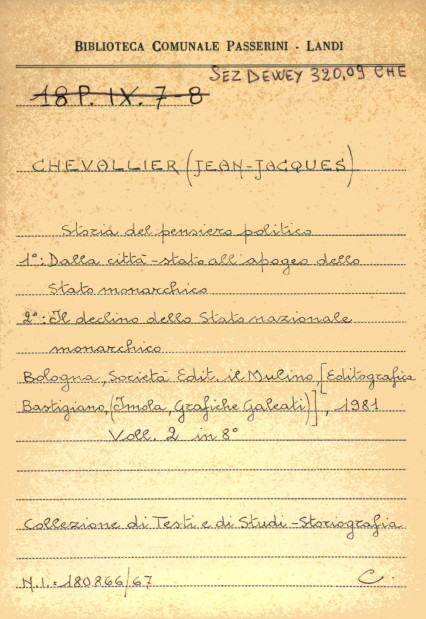 BIBLIOTECA COMUNALE PASSERINI - LANDI
SEZ DEWEY 320,09 CHE
18 P. IX. 7-8
CHEVALLIER (JEAN-JACQUES)
Storia del pensiero politico
1°: Dalla città-stato all'apogeo dello
Stato monarchico
2°: Il declino dello Stato nazionale
monarchico
Bologna, Società Edit. il Mulino, [Editografica
Bastigiano, (Imola, Grafiche Galeati)], 1981
Voll. 2 in 8°
Collezione di Testi e di Studi - Storiografia
N.I.= 180866/67
C.